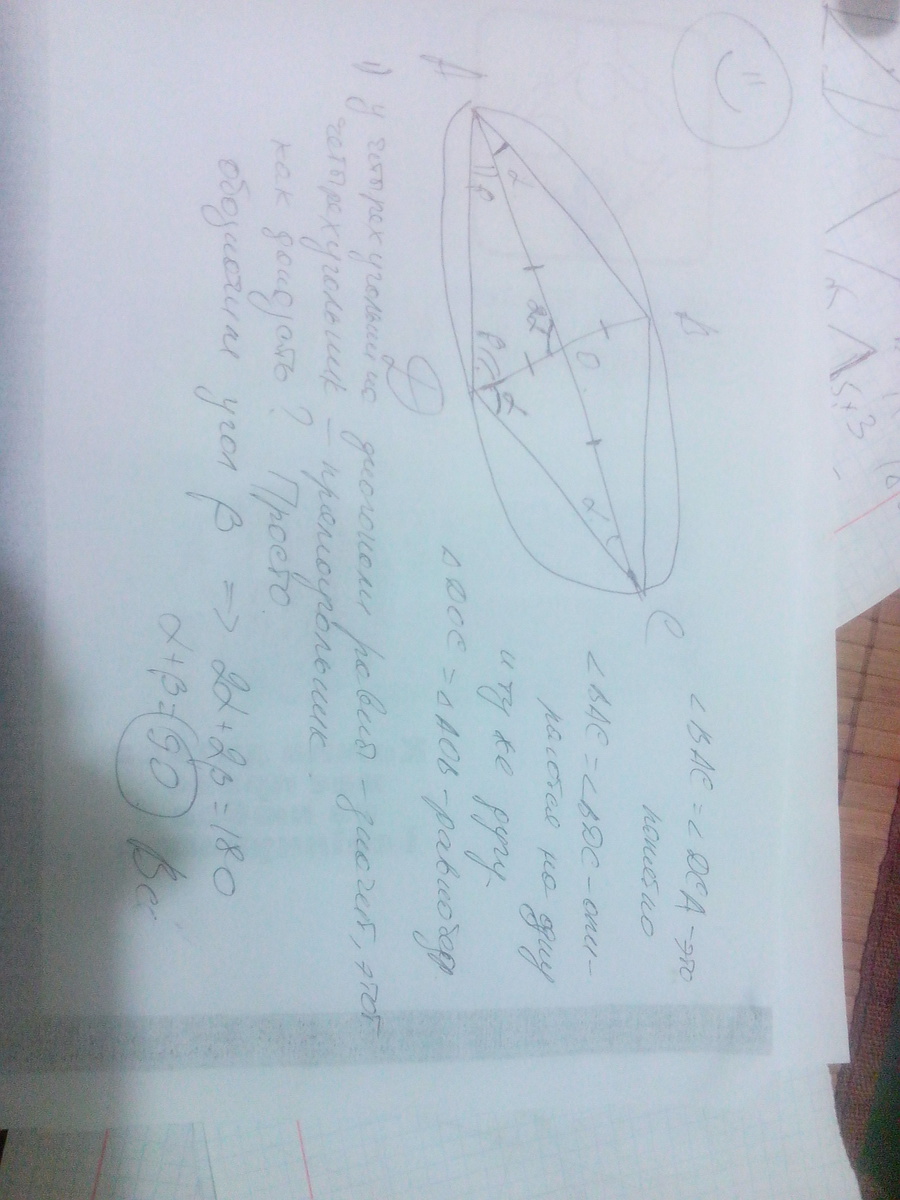 A
B
C
D
O
α
β
2α
α
β
α
∠BAC = ∠DCA - это
понятно
∠BAC = ∠BDC - опи-
раются на одну
и ту же дугу
△DOC = △AOB - равнобедр
1) У четырехугольника диагонали равны - значит, этот
четырехугольник - прямоугольник
как доказать? Просто.
обозначим угол β => 2α + 2β = 180
α + β = 90